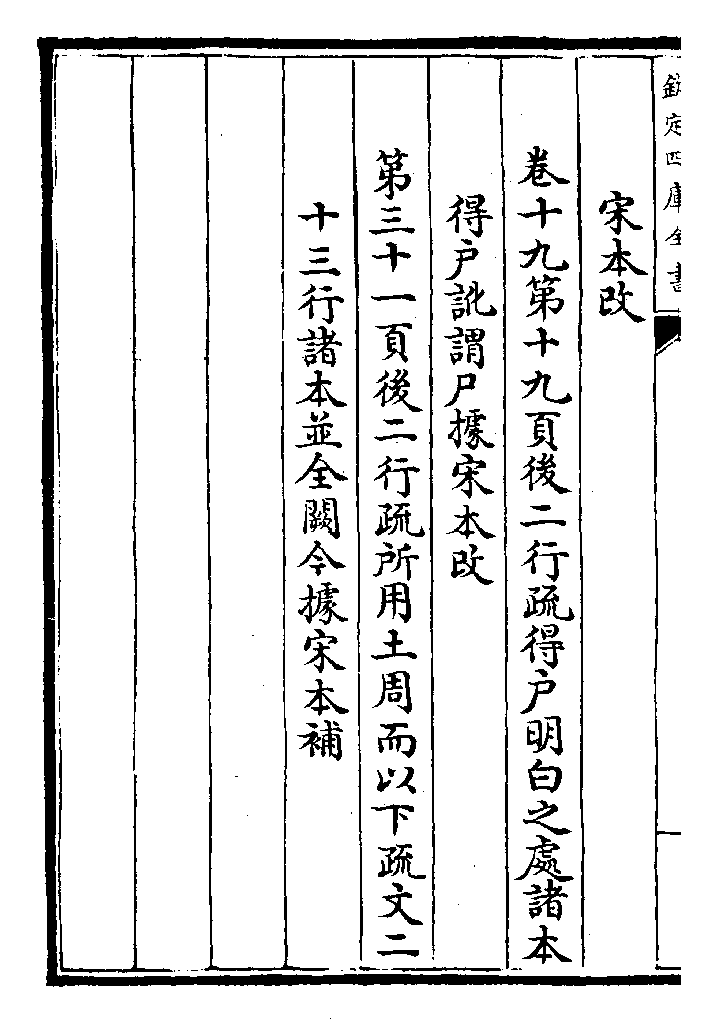 欽定四庫全書
宋本改
卷十九第十九頁後二行疏得户明白之處諸本
得户訛謂尸據宋本改
第三十一頁後二行疏所用土周而以下疏文二
十三行諸本並全闕今據宋本補